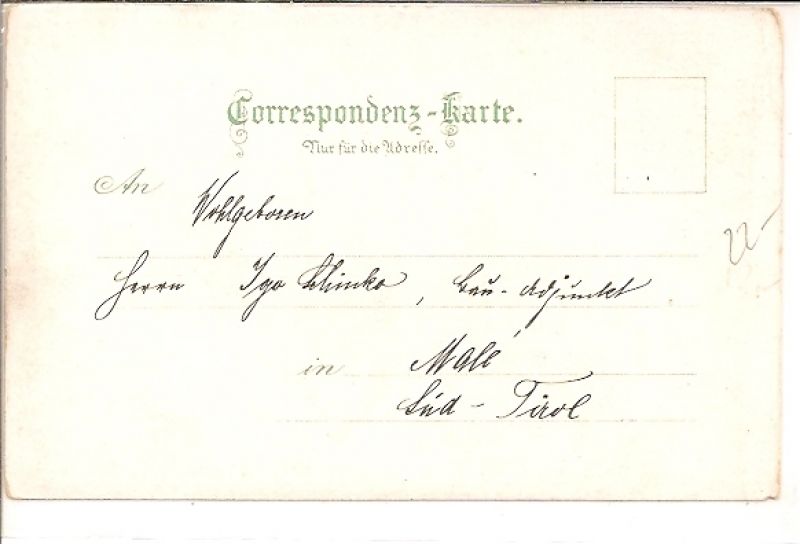 Correspondenz-Karte.
Nur für die Adresse.
An Wohlgeboren
Herrn Igo Klinko, Bau-Adjunkt
in Malé
Süd-Tirol
22-